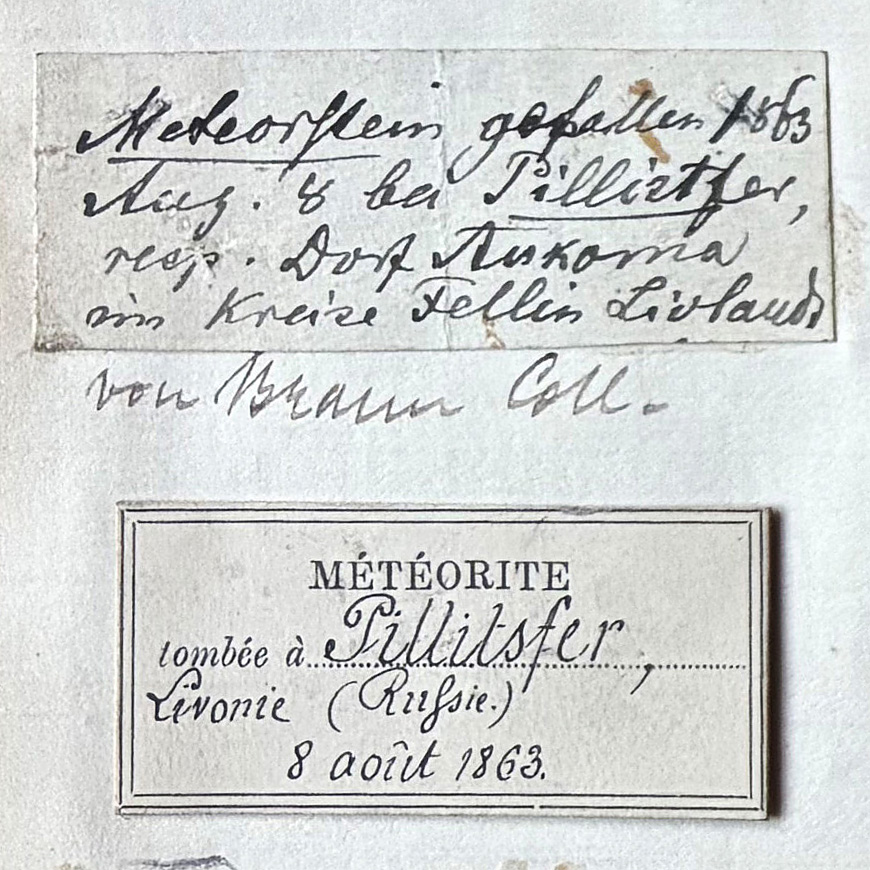 Meteorstein gefallen 1863
Aug. 8 bei Pillistfer,
resp. Dorf Aukoma
im Kreise Fellin Livlands
von Braun Coll.
MÉTÉORITE
tombée à Pillitsfer,
Livonie (Russie.)
8 août 1863.